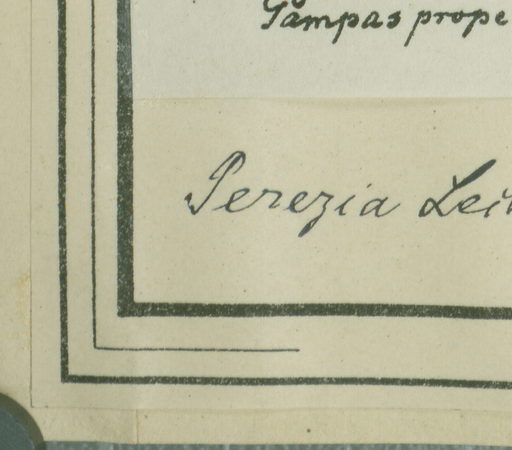 Pampas prope
Perezia Lei